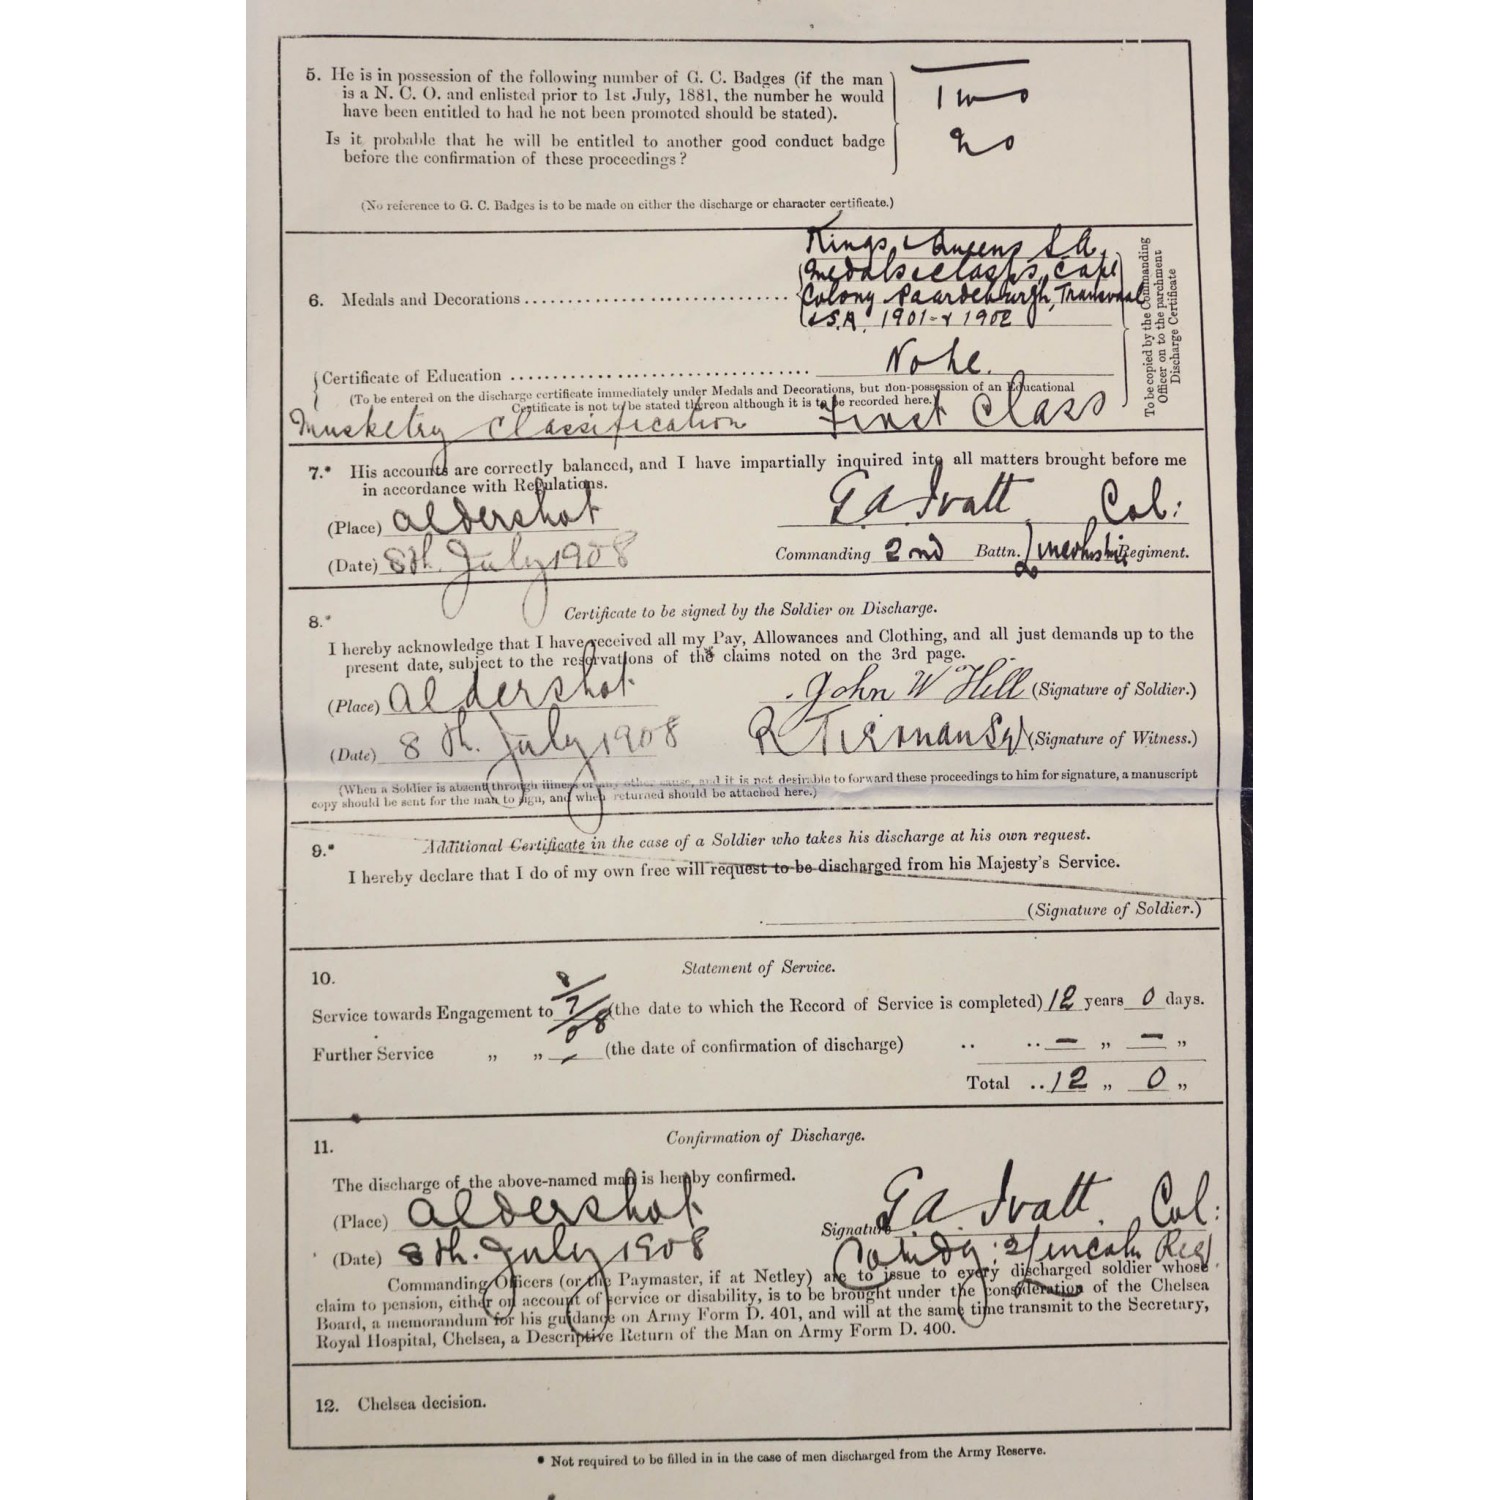 5. He is in possession of the following number of G. C. Badges (if the man
is a N. C. O. and enlisted prior to 1st July, 1881, the number he would
have been entitled to had he not been promoted should be stated).
Two
Is it probable that he will be entitled to another good conduct badge
before the confirmation of these proceedings?
No
(No reference to G. C. Badges is to be made on either the discharge or character certificate.)
Kings & Queens S.A.
Medals & clasps, Cape
6. Medals and Decorations
Colony Paardeburgh, Transvaal
& S.A. 1901 - & 1902
To be copied by the Commanding
Officer on to the parchment
Discharge Certificate
Certificate of Education
None.
(To be entered on the discharge certificate immediately under Medals and Decorations, but non-possession of an Educational
Certificate is not to be stated thereon although it is to be recorded here.)
Musketry Classification First Class
7.* His accounts are correctly balanced, and I have impartially inquired into all matters brought before me
in accordance with Regulations.
(Place) Aldershot
G A Ivatt Col:
(Date) 8th. July 1908
Commanding 2nd Battn. Lincolnshire Regiment.
8.* Certificate to be signed by the Soldier on Discharge.
I hereby acknowledge that I have received all my Pay, Allowances and Clothing, and all just demands up to the
present date, subject to the reservations of the claims noted on the 3rd page.
(Place) Aldershot
John W Hill (Signature of Soldier.)
(Date) 8th. July 1908
R (Signature of Witness.)
(When a Soldier is absent through illness or any other cause, and it is not desirable to forward these proceedings to him for signature, a manuscript
copy should be sent for the man to sign, and when returned should be attached here.)
9.* Additional Certificate in the case of a Soldier who takes his discharge at his own request.
I hereby declare that I do of my own free will request to be discharged from his Majesty's Service.
(Signature of Soldier.)
10. Statement of Service.
Service towards Engagement to 8/7/08 (the date to which the Record of Service is completed) 12 years 0 days.
Further Service „ „ - (the date of confirmation of discharge) .. .. - „ - „
Total .. 12 „ 0 „
11. Confirmation of Discharge.
The discharge of the above-named man is hereby confirmed.
(Place) Aldershot
Signature G A. Ivatt. Col:
(Date) 8th. July 1908
Comdg: 2/Lincoln Reg
Commanding Officers (or the Paymaster, if at Netley) are to issue to every discharged soldier whose
claim to pension, either on account of service or disability, is to be brought under the consideration of the Chelsea
Board, a memorandum for his guidance on Army Form D. 401, and will at the same time transmit to the Secretary,
Royal Hospital, Chelsea, a Descriptive Return of the Man on Army Form D. 400.
12. Chelsea decision.
* Not required to be filled in in the case of men discharged from the Army Reserve.